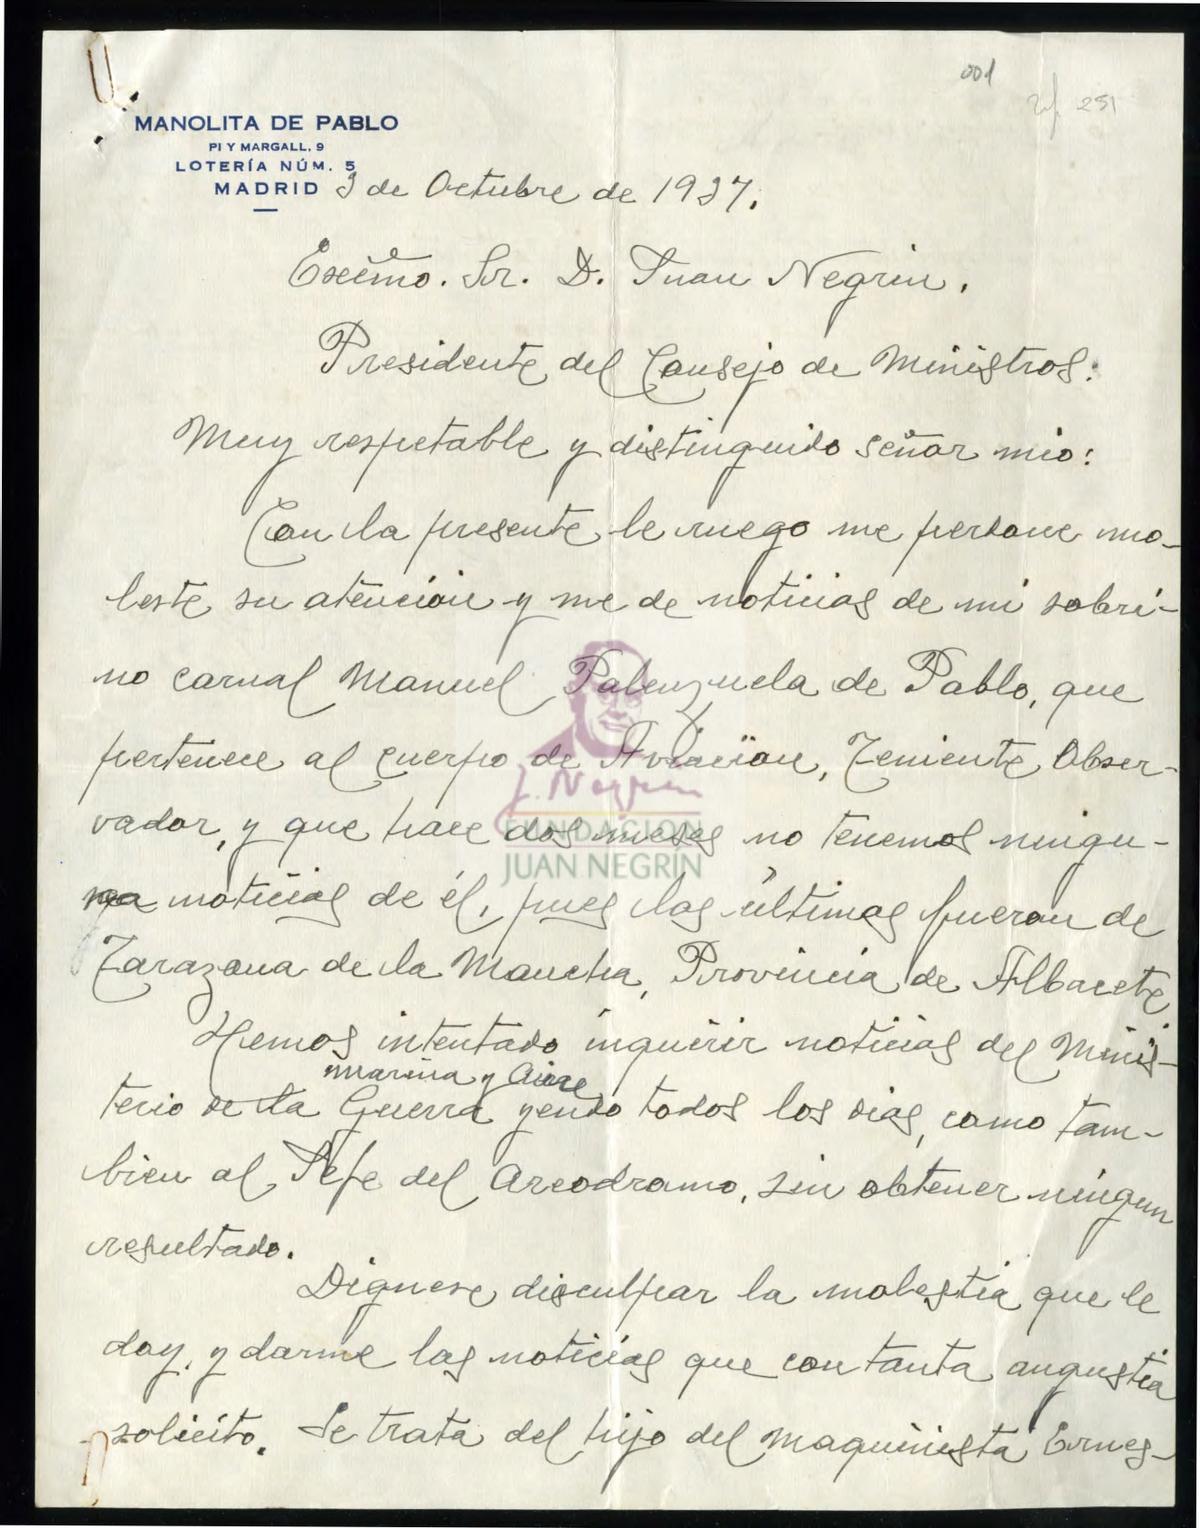 001
MANOLITA DE PABLO
PI Y MARGALL, 9
LOTERÍA NÚM. 5
MADRID 3 de Octubre de 1937.
Excmo. Sr. D. Juan Negrin.
Presidente del Consejo de Ministros:
Muy respetable y distinguido señor mio:
Con la presente le ruego me perdone mo-
leste su atención y me de noticias de mi sobri-
no carnal Manuel Palenzuela de Pablo, que
pertenece al cuerpo de Aviación, Teniente Obser-
vador, y que hace dos meses no tenemos ningu-
na noticias de él, pues las últimas fueron de
Tarazona de la Mancha, Provincia de Albacete
Hemos intentado inquirir noticias del Minis-
marina y Aire
terio de la Guerra yendo todos los dias, como tam-
bien al Jefe del Areodromo, sin obtener ningun
resultado.
Dignese disculpar la molestia que le
doy, y darme las noticias que con tanta angustia
solicito. Se trata del hijo del maquinista Ernes-
J. Negrín
FUNDACIÓN
JUAN NEGRÍN